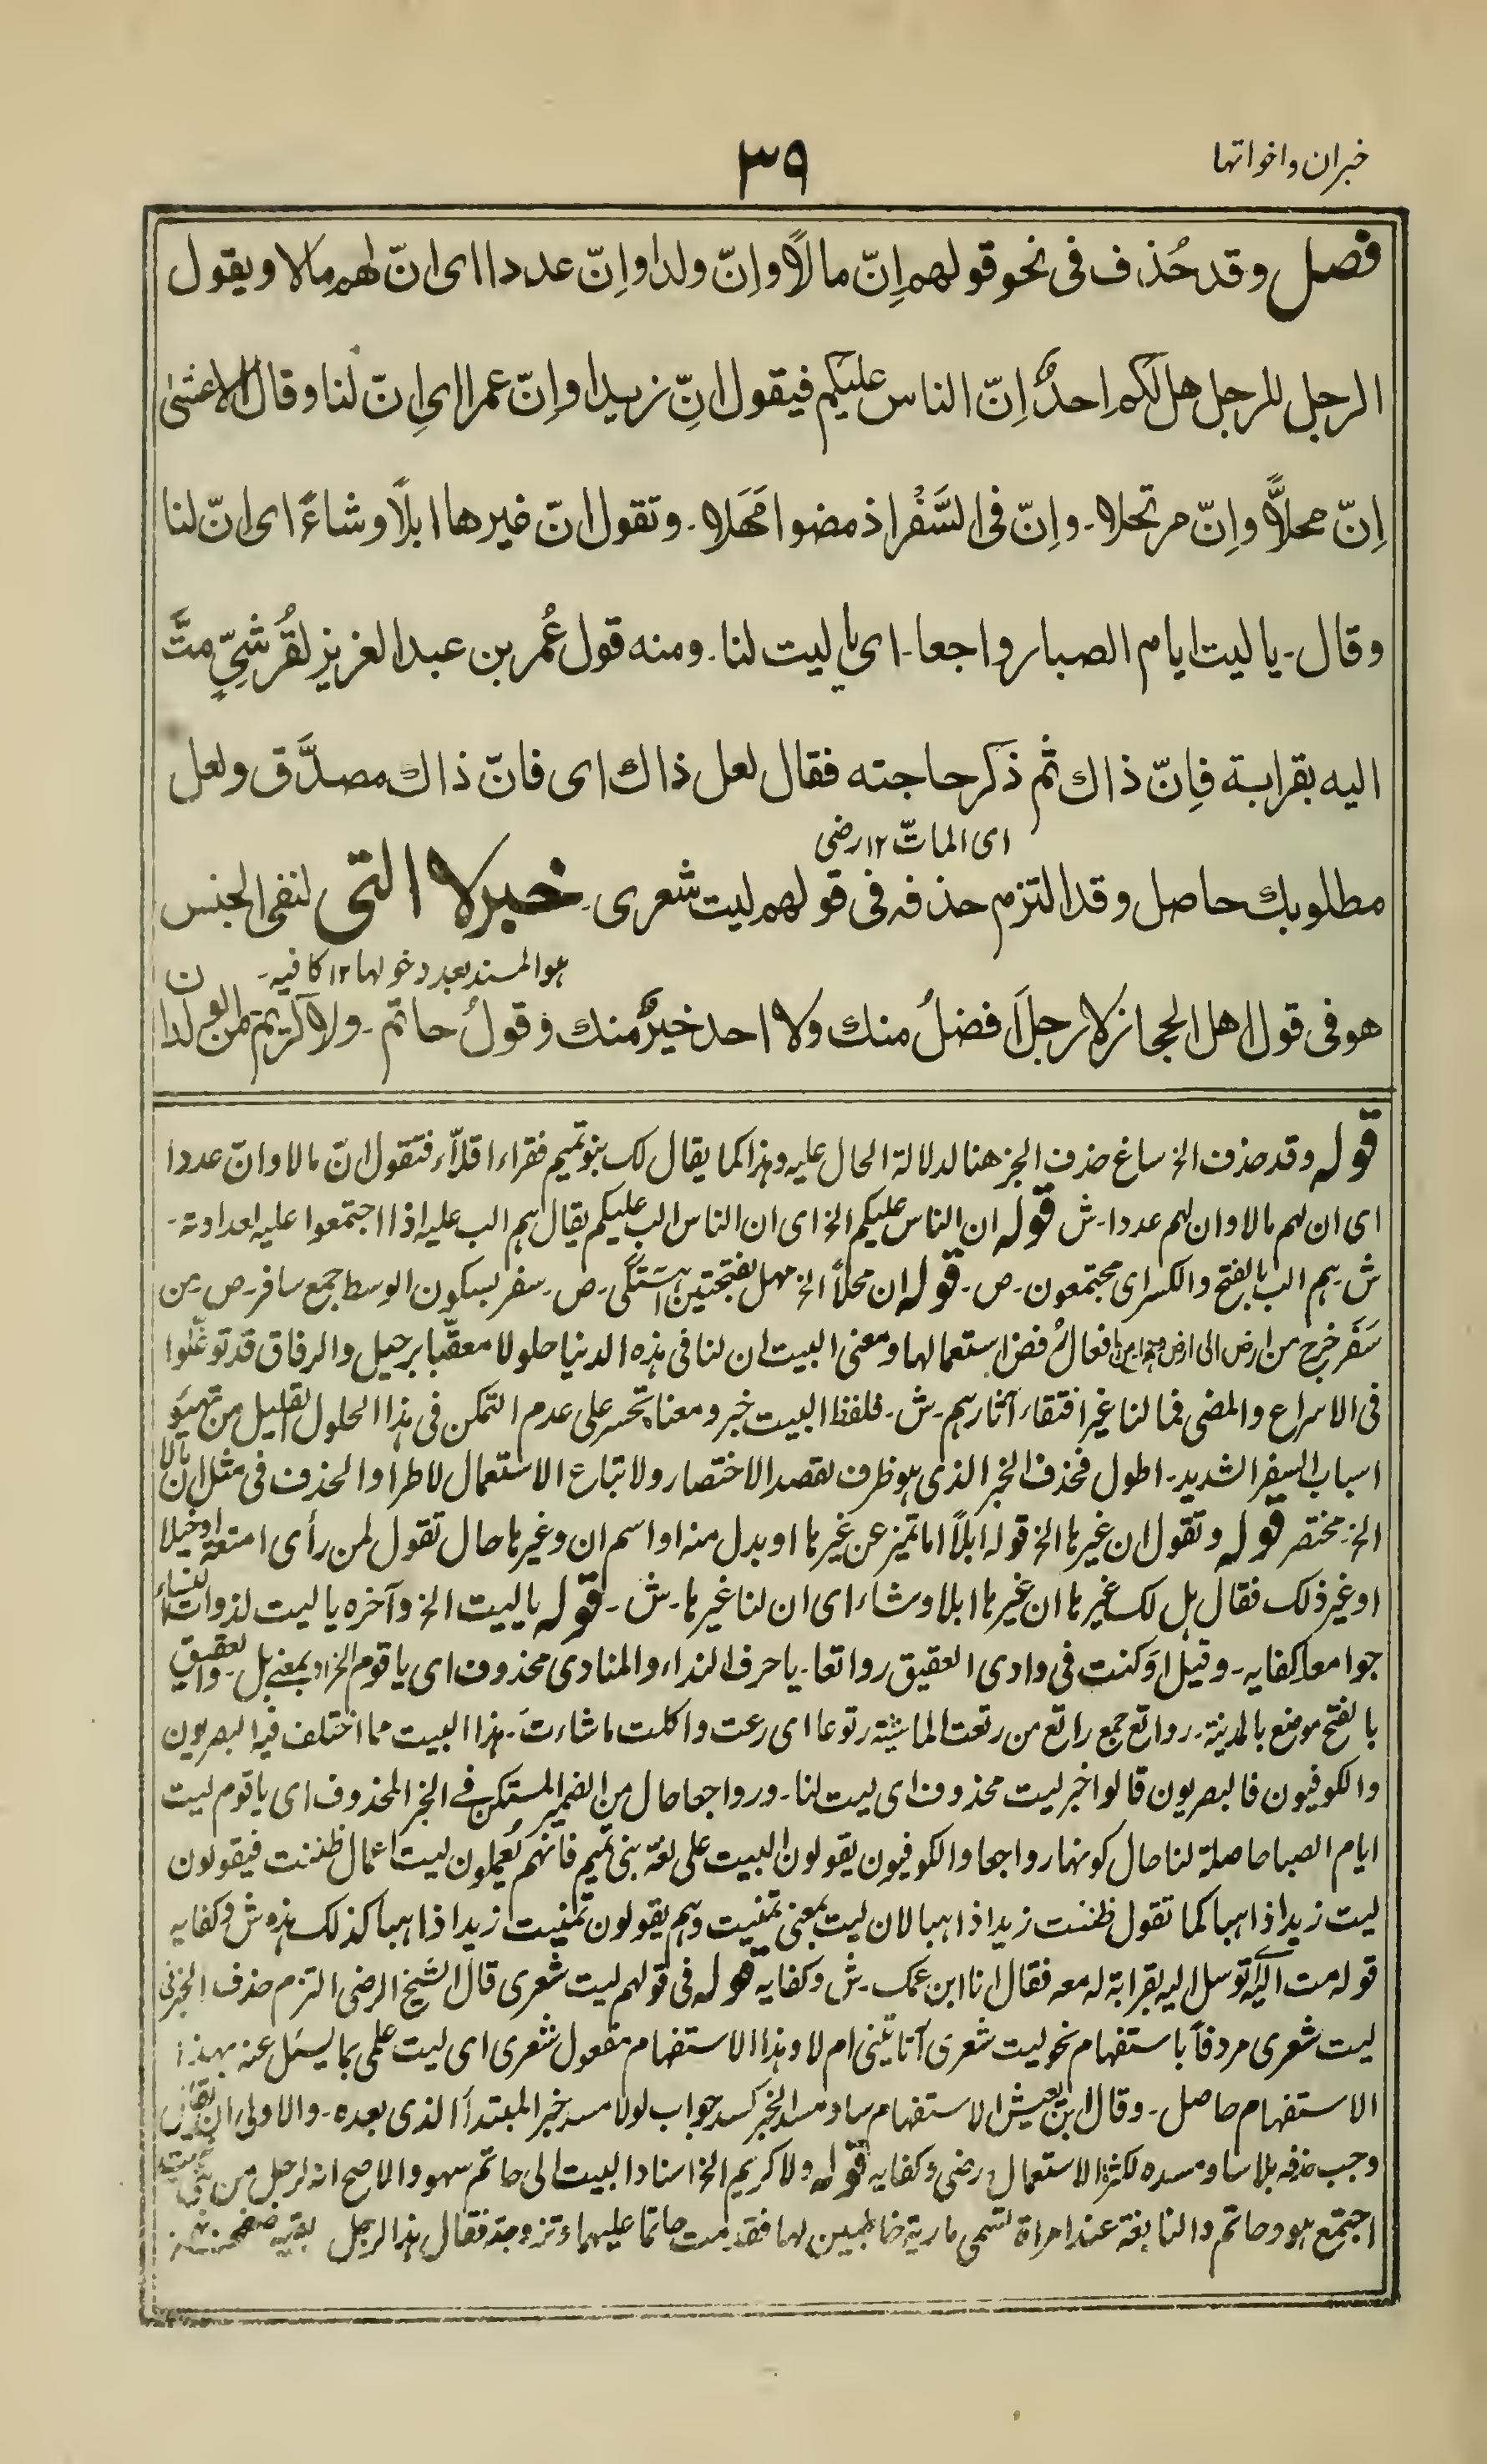 خبران واخواتها
٣٩
فصل وقد حُذف فى نحو قولهم اِنّ مالًا واِنّ ولدا واِنّ عددا اى انّ لهم مالا ويقول
الرجل للرجل هل لكم احدٌ اِنّ الناس عليكم فيقول انّ زيدا واِنّ عمرا اى اِنّ لنا وقال الاعشى
اِنّ محلًّا واِنّ مرتحلا ـ واِنّ فى السَّفْر اذ مضوا مَهَلا ـ وتقول انّ غيرها ابلًا وشاءً اى انّ لنا
وقال ـ يا ليت ايام الصبا رواجعا ـ اى يا ليت لنا ـ ومنه قول عُمر بن عبد العزيز لقُرَشِيٍّ متَّ
اليه بقرابة فاِنّ ذاك ثم ذكر حاجته فقال لعل ذاك اى فانّ ذاك مصدَّق ولعل
اى المات ١٢ رضى
مطلوبك حاصل وقد التزم حذفه فى قولهم ليت شعرى ـ خبر لا التى لنفى الجنس
هو المسند بعد دخولها ١٢ كافيه ـ
هو فى قول اهل الحجاز لا رجلَ افضلُ منك ولا احد خيرٌ منك وقولُ حاتم ـ ولا كريم من الولدان
قوله وقد حذف الخ ساغ حذف الخبر هنا لدلالة الحال عليه وهذا كما يقال لك بنو تميم فقراء اقلّاء فتقول انّ مالا وانّ عددا
اى ان لهم مالا وان لهم عددا ـ ش قوله ان الناس عليكم الخ اى ان الناس الب عليكم يقال هم الب عليه اذا اجتمعوا عليه لعداوته ـ
ش ـ هم الب بالفتح والكسر اى مجتمعون ـ ص ـ قوله ان محلاً الخ مهل بفتحتين آهستگى ـ ص ـ سفر بسكون الوسط جمع سافر ـ ص ـ من
سَفَر خرج من ارض الى ارض فعال رفض استعمالها ومعنى البيت ان لنا فى هذه الدنيا حلولا معقّبا برحيل والرفاق قد توغّلوا
فى الاسراع والمضى فما لنا غير افتقاء آثارهم ـ ش ـ فلفظ البيت خبر ومعناه تحسر على عدم التمكن فى هذا الحلول القليل من تهيؤ
اسباب السفر الشديد ـ اطول فحذف الخبر الذى هو ظرف لقصد الاختصار ولاتباع الاستعمال لاطراد الحذف فى مثل ان مالا
الخ ـ مختصر قوله وتقول ان غيرها الخ قوله ابلاً اما تميز عن غيرها او بدل منه او اسم ان وغيرها حال تقول لمن رأى امتعة او خيلا
او غير ذلك فقال هل لك غيرها ان غيرها ابلا وشاء اى ان لنا غيرها ـ ش ـ قوله يا ليت الخ وآخره يا ليت لذوات النساء
جوامعا كفايه ـ وقيل او كنت فى وادى العقيق رواتعا ـ يا حرف النداء والمنادى محذوف اى يا قوم الخ او بمعنى بل ـ والعقيق
بالفتح موضع بالمدينة ـ رواتع جمع راتع من رتعت الماشية رتوعا اى رعت واكلت ما شاءت ـ هذا البيت مما اختلف فيه البصريون
والكوفيون فالبصريون قالوا خبر ليت محذوف اى ليت لنا ـ ورواجعا حال من الضمير المستكن فى الخبر المحذوف اى يا قوم ليت
ايام الصبا حاصلة لنا حال كونها رواجعا والكوفيون يقولون البيت على لغة بنى تميم فانهم يُعملون ليت اعمال ظننت فيقولون
ليت زيدا ذاهبا كما تقول ظننت زيدا ذاهبا لان ليت بمعنى تمنيت وهم يقولون تمنيت زيدا ذاهبا كذلك هذه ش وكفايه
قوله مت اليه اى توسل اليه بقرابة له معه فقال انا ابن عمك ـ ش وكفايه قوله فى قولهم ليت شعرى قال الشيخ الرضى التزم حذف الخبر فى
ليت شعرى مردفاً باستفهام نحو ليت شعرى أتاتينى ام لا وهذا الاستفهام مفعول شعرى اى ليت علمى بما يسئل عنه بهذا
الاستفهام حاصل ـ وقال ابن يعيش الاستفهام ساد مسد الخبر كسد جواب لولا مسد خبر المبتدأ الذى بعده ـ والاولى ان يقال
وجب حذفه بلا ساد مسده لكثرة الاستعمال ـ رضى وكفايه قوله ولا كريم الخ اسناد البيت الى حاتم سهو والاصح انه لرجل من
اجتمع هو وحاتم والنابغة عند امراة تسمى مارية خاطبين لها فقدمت حاتما عليهما وتزوجته فقال هذا الرجل بقيه صفحه